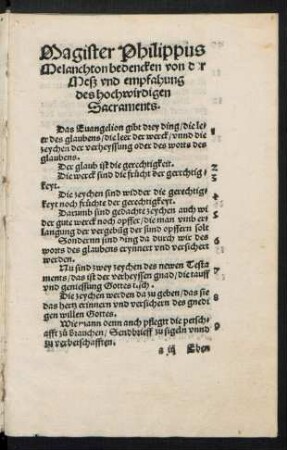 Magister Philippus
Melanchton bedencken von der
Meß vnd empfahung
des hochwirdigen
Sacraments.
Das Euangelion gibt drey ding/die le-
er des glaubens/die leer der werck/vnnd die
zeychen der verheyssung oder des worts des
glaubens.
1
Der glaub ist die gerechtigkeit.
2
Die werck sind die frücht der gerechtig
keyt.
3
Die zeychen sind widder die gerechtig
keyt noch früchte der gerechtigkeyt.
4
Darumb sind gedachte zeychen auch wi
der gute werck noch opffer/die man vmb er
langung der vergebūg der sund opffern solt
5
Sondernn sind ding da durch wir des
worts des glaubens erynnert vnd versichert
werden.
6
Nu sind zwey zeychen des newen Testa
ments/das ist der verheyssen gnad/die tauff
vnd geniessung Gottes tisch.
7
Die zeychen werden da zu geben/das sie
das hertz erinnern vnd versichern des gnedi
gen willen Gottes.
8
Wie man denn auch pflegt die petsch-
afft zu brauchen/Sendbrieff zu sigeln vnnd
zu verbetschafften.
9
a iij Eben